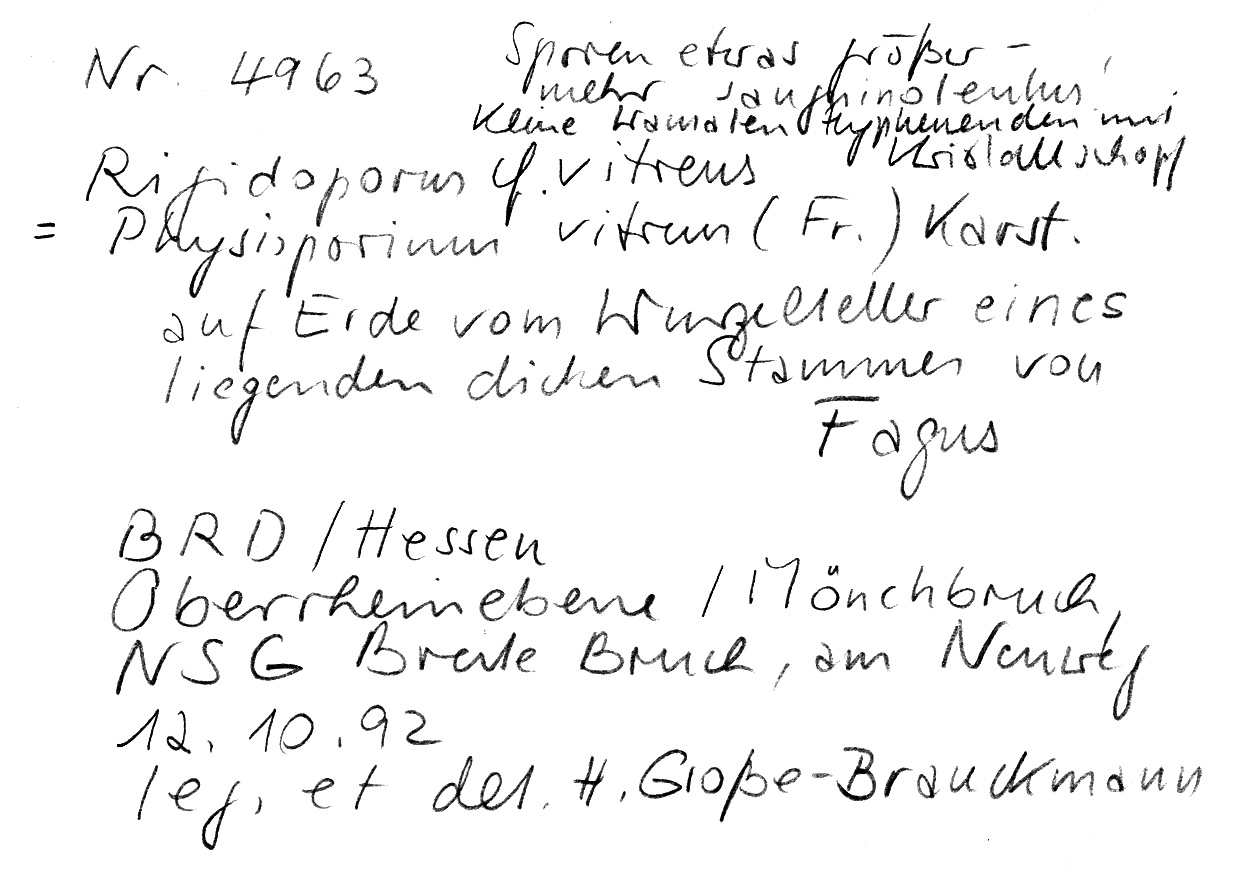 Nr. 4963
Sporen etwas größer –
mehr sanguinolentus,
Keine tramalen Hyphenenden mit
Kristallschopf
Rigidoporus cf. vitreus
= Physisporinus vitreus (Fr.) Karst.
auf Erde vom Wurzelteller eines
liegenden dicken Stammes von
Fagus
BRD / Hessen
Oberrheinebene / Mönchbruch,
NSG Breite Bruch, am Neuweg
12. 10. 92
leg. et det. H. Große-Brauckmann